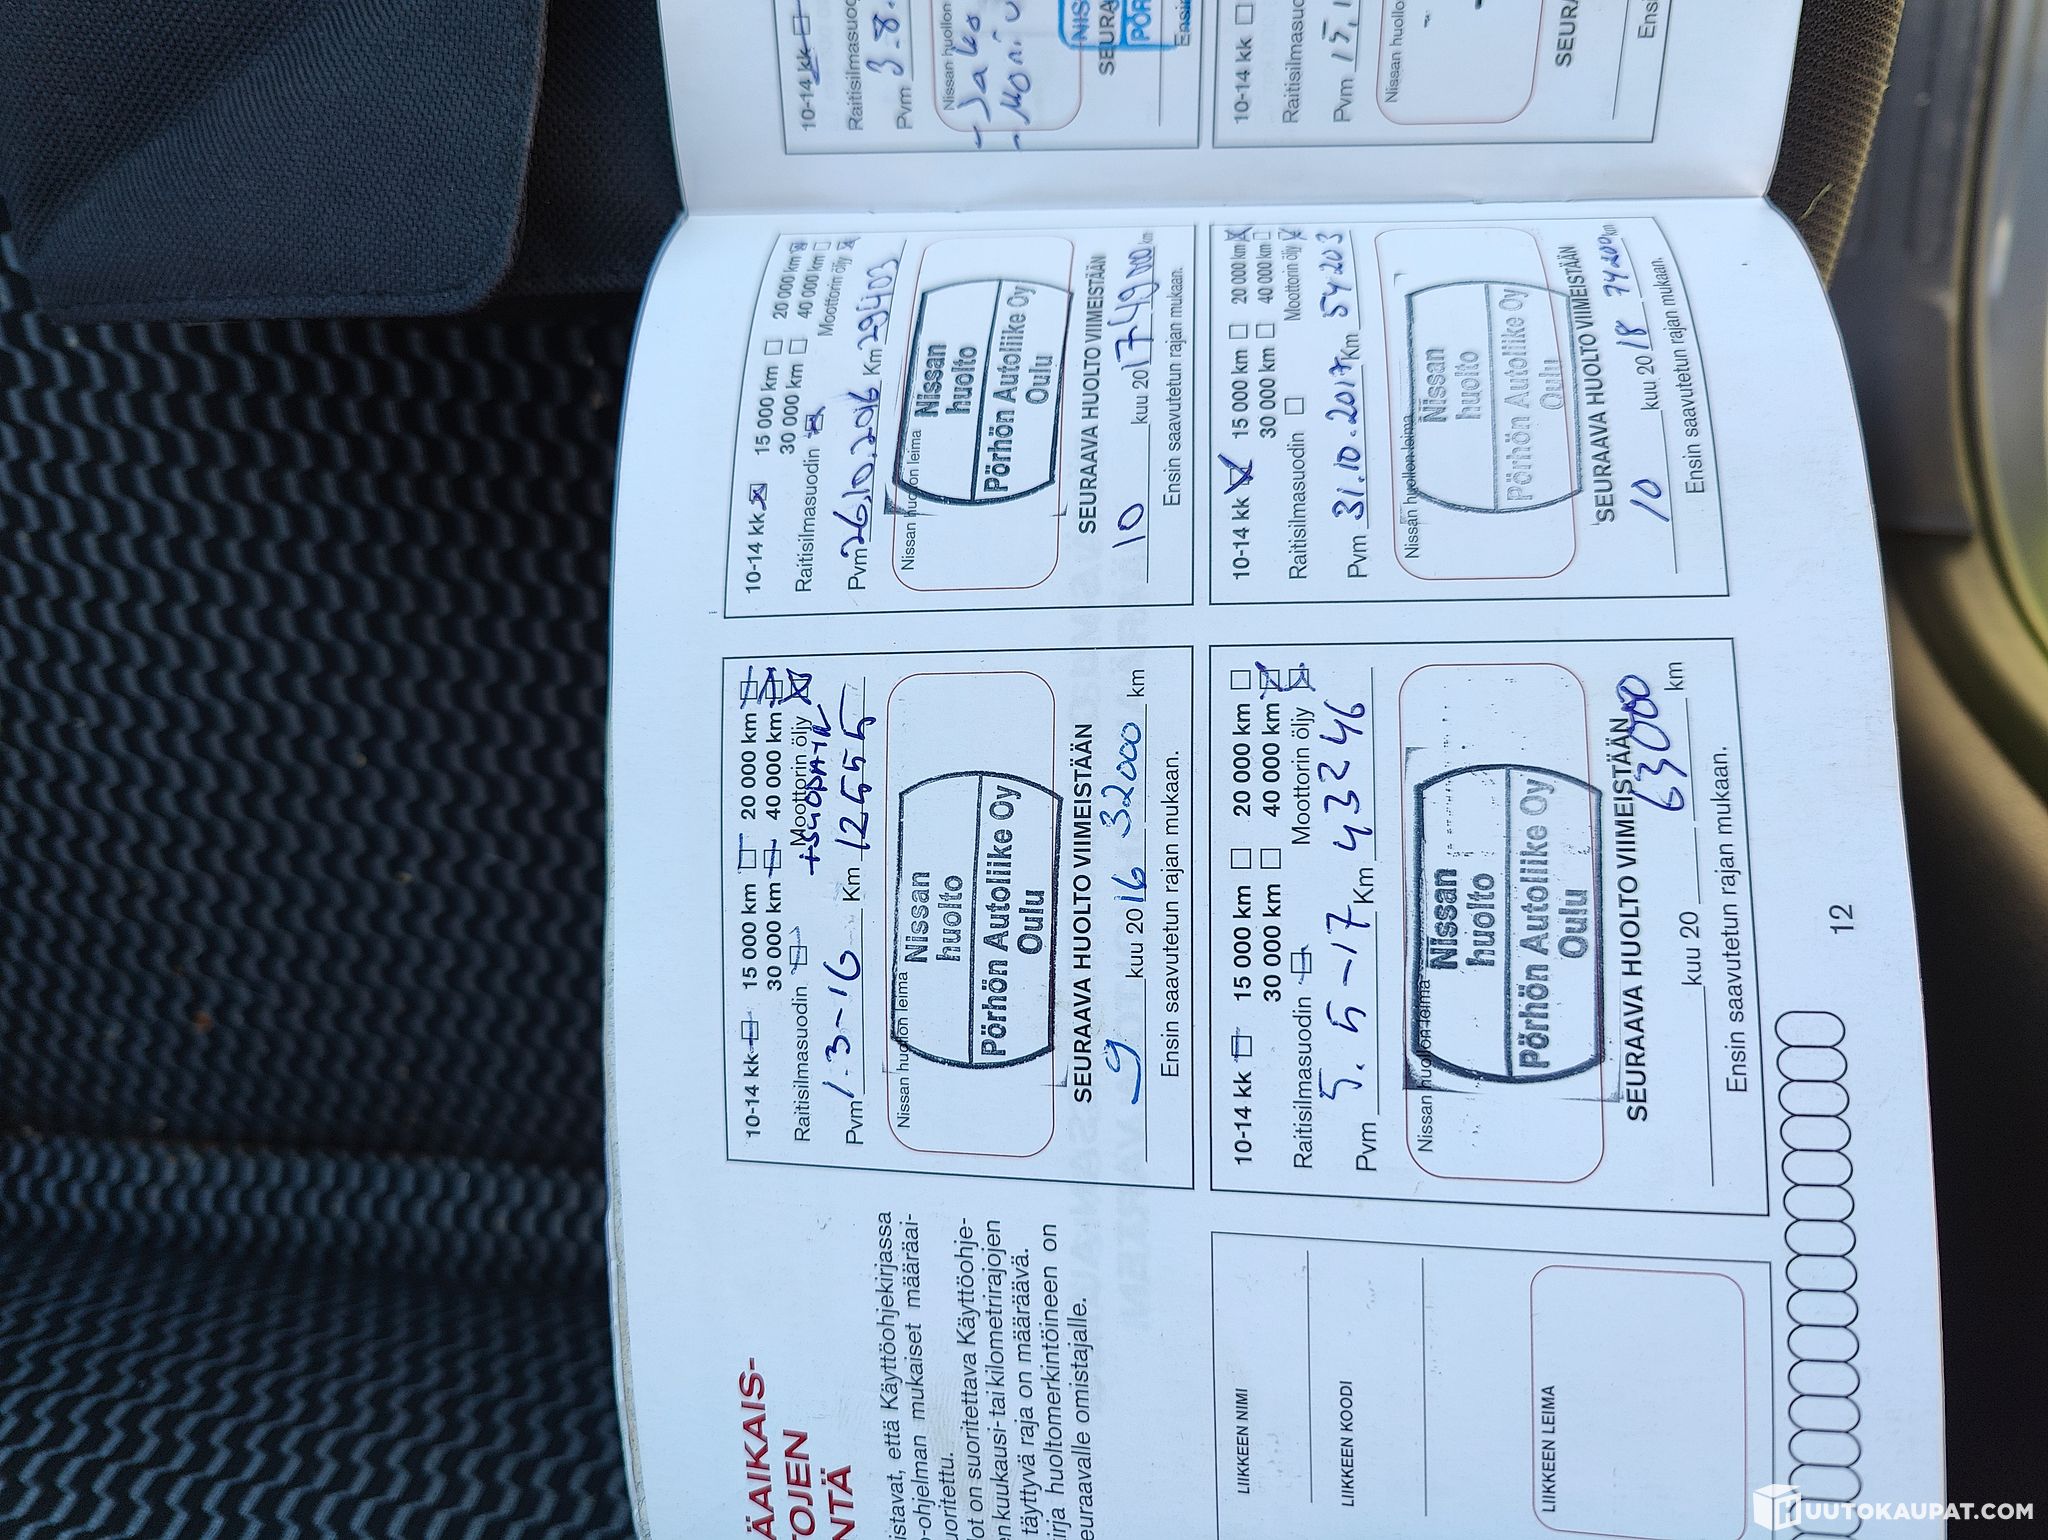 ÄAIKAIS-
TOJEN
NTÄ
istavat, että Käyttöohjekirjassa
-ohjelman mukaiset määräai-
uoritettu.
ot on suoritettava Käyttöohje-
en kuukausi- tai kilometrirajojen
täyttyvä raja on määräävä.
irja huoltomerkintöineen on
euraavalle omistajalle.
LIIKKEEN NIMI
LIIKKEEN KOODI
LIIKKEEN LEIMA
10-14 kk 15 000 km 20 000 km
30 000 km 40 000 km
Raitisilmasuodin Moottorin öljy
+SUODATIN
Pvm 1.3-16 Km 12555
Nissan huollon leima
Nissan
huolto
Pörhön Autoliike Oy
Oulu
SEURAAVA HUOLTO VIIMEISTÄÄN
9 kuu 2016 32000 km
Ensin saavutetun rajan mukaan.
10-14 kk 15 000 km 20 000 km
30 000 km 40 000 km
Raitisilmasuodin Moottorin öljy
Pvm 5.5-17 Km 43246
Nissan huollon leima
Nissan
huolto
Pörhön Autoliike Oy
Oulu
SEURAAVA HUOLTO VIIMEISTÄÄN
63000
kuu 20 km
Ensin saavutetun rajan mukaan.
12
10-14 kk 15 000 km 20 000 km
30 000 km 40 000 km
Raitisilmasuodin Moottorin öljy
Pvm 26.10.2016 Km 29403
Nissan huollon leima
Nissan
huolto
Pörhön Autoliike Oy
Oulu
SEURAAVA HUOLTO VIIMEISTÄÄN
10 kuu 2017 49000 km
Ensin saavutetun rajan mukaan.
10-14 kk 15 000 km 20 000 km
30 000 km 40 000 km
Raitisilmasuodin Moottorin öljy
Pvm 31.10.2017 Km 54203
Nissan huollon leima
Nissan
huolto
Pörhön Autoliike Oy
Oulu
SEURAAVA HUOLTO VIIMEISTÄÄN
10 kuu 2018 74200 km
Ensin saavutetun rajan mukaan.
10-14 kk
Raitisilmasuod
Pvm 3.8.
Nissan huollon
- Jako
- Moni
NIS
SEURA
PÖR
Ensin
10-14 kk
Raitisilmasuo
Pvm 15.1
Nissan huollo
SEURA
Ensi
HUUTOKAUPAT.COM